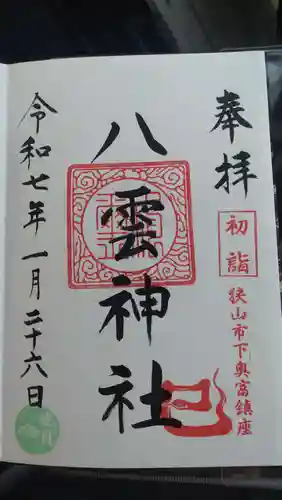 奉拝
初詣
狭山市下奥富鎮座
八雲神社
令和七年一月二十六日
巳